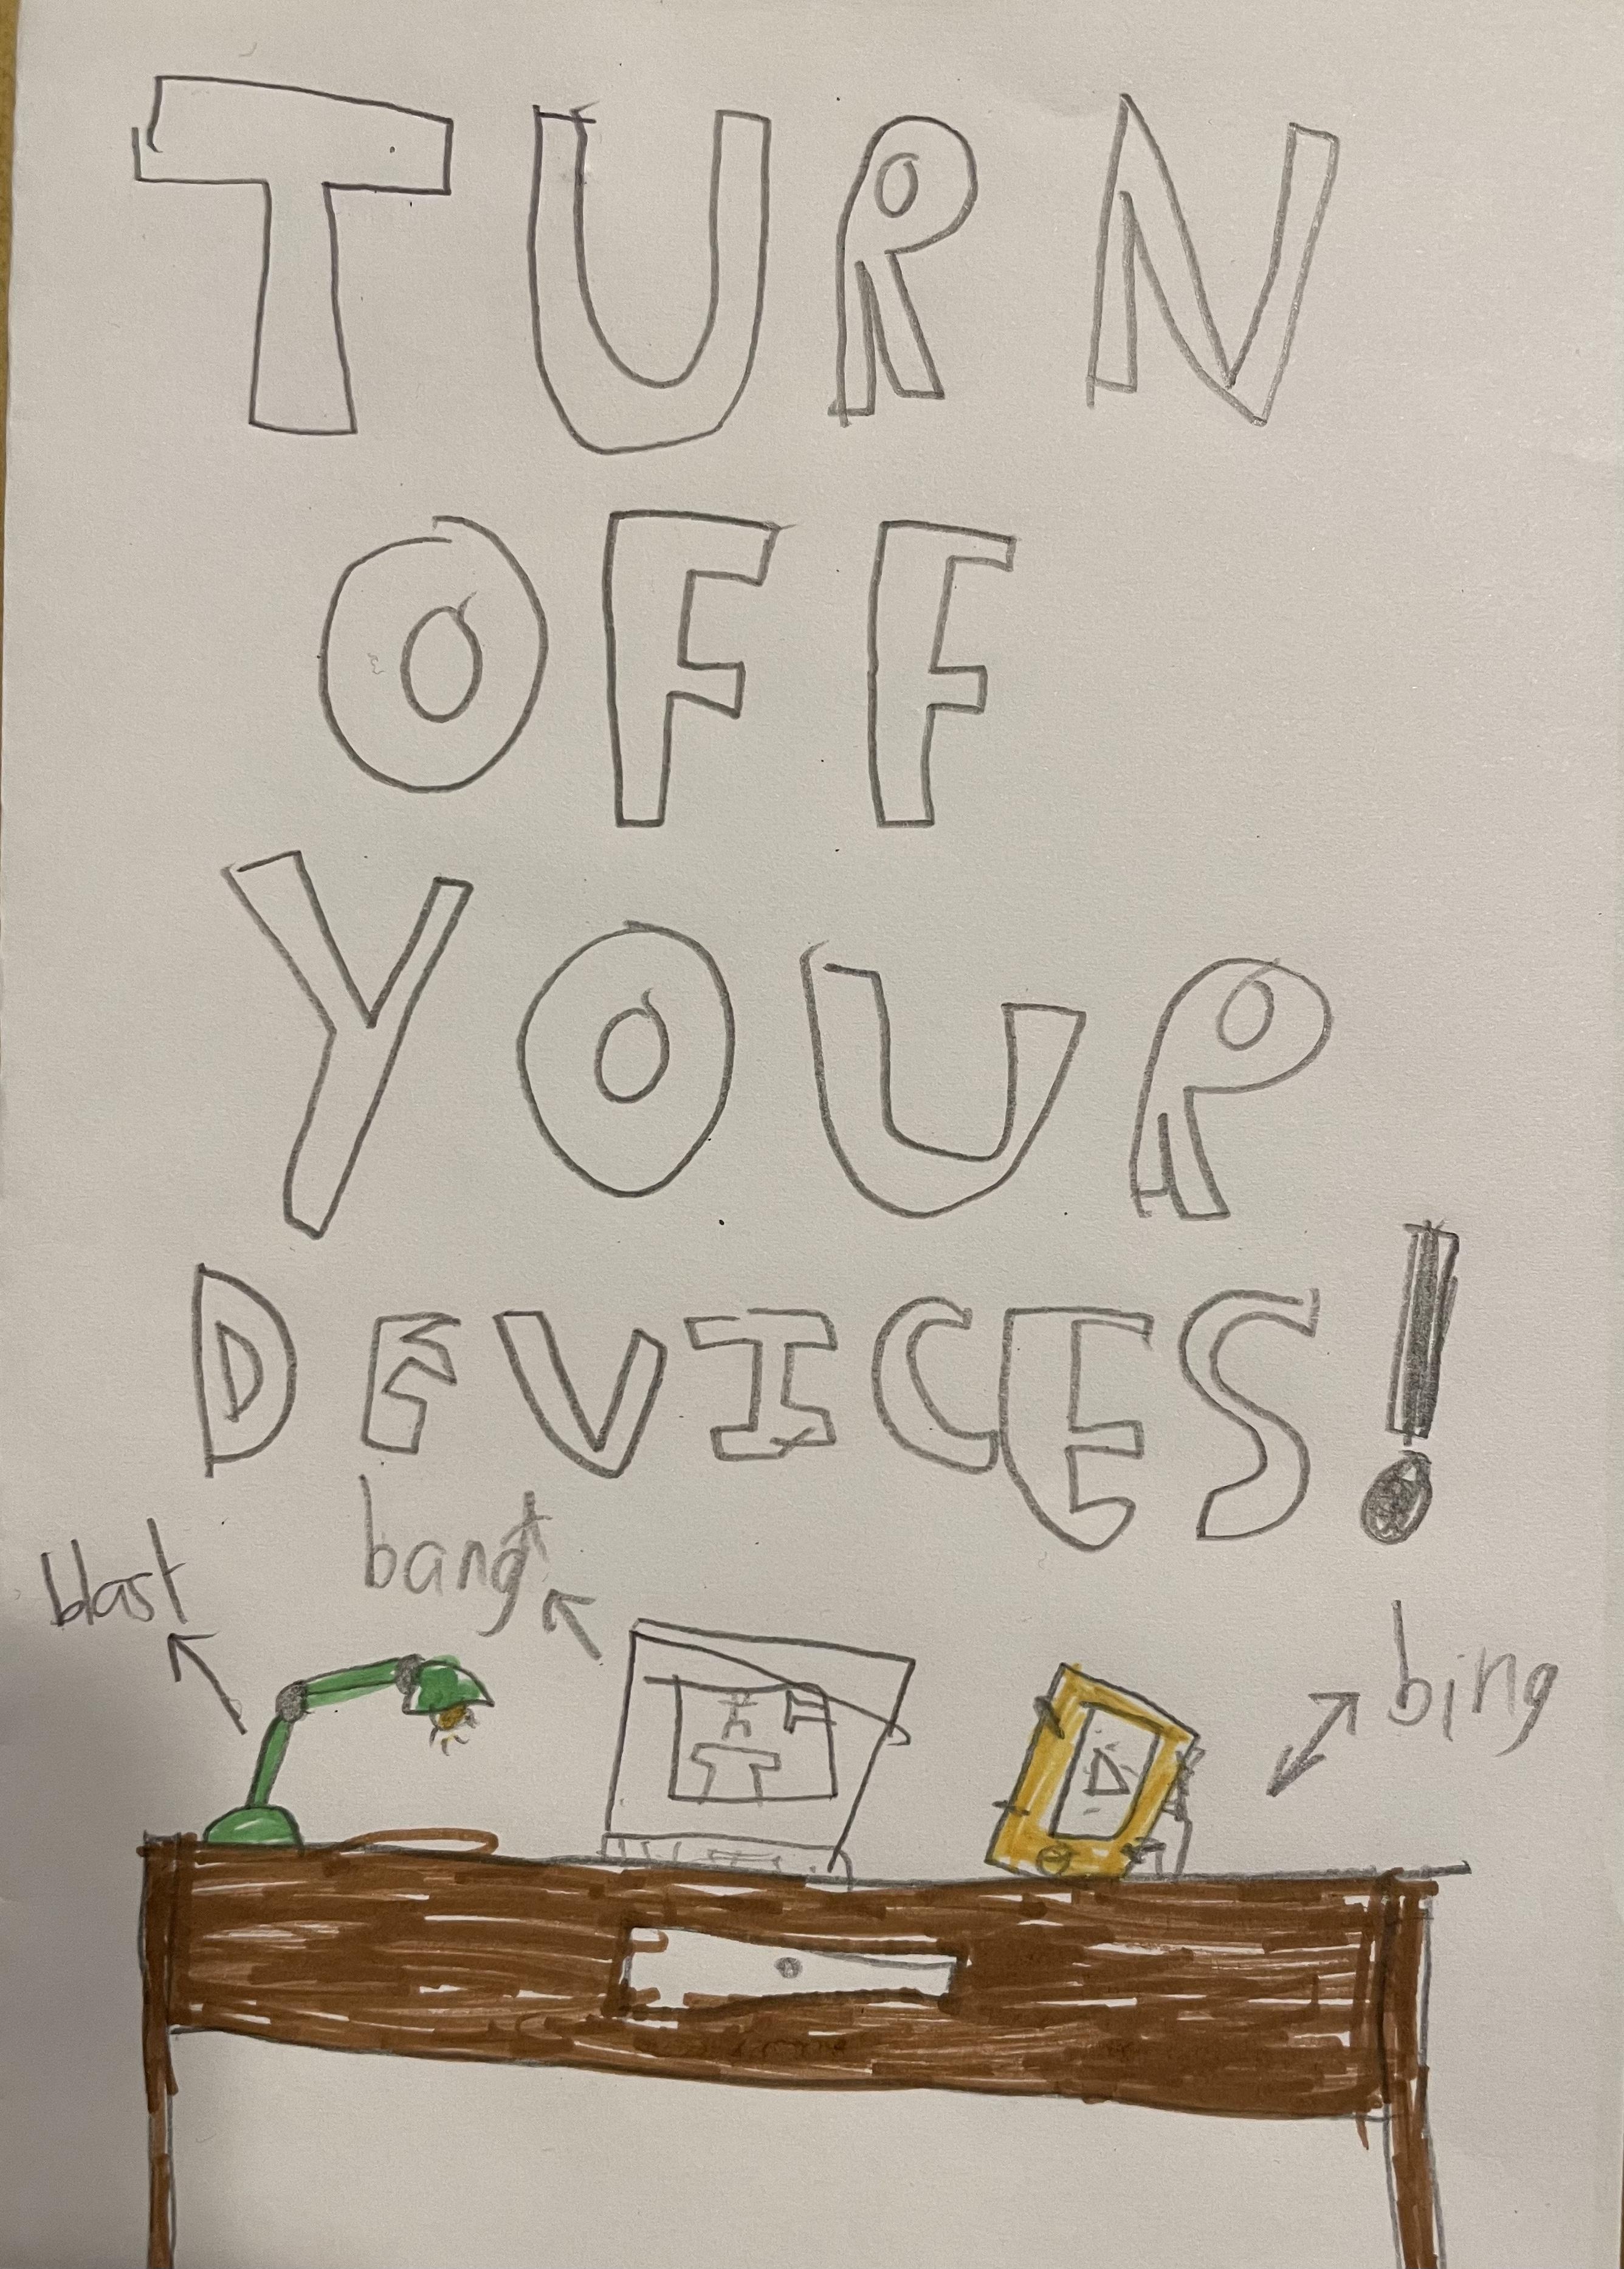 TURN
OFF
YOUR
DEVICES!
blast
bang
bing